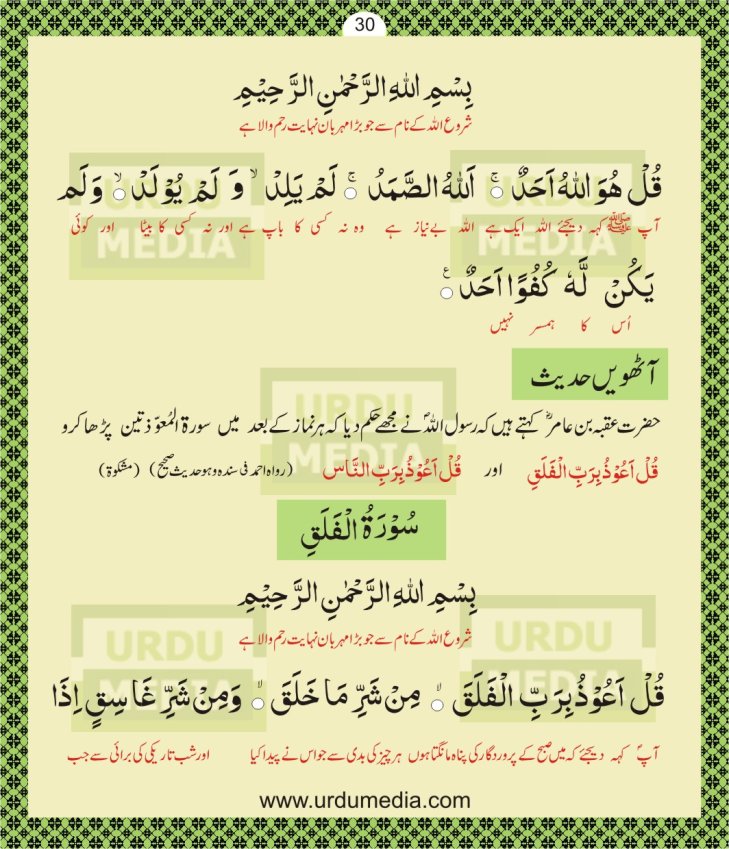 30
بِسْمِ اللهِ الرَّحْمٰنِ الرَّحِيْمِ
شروع اللہ کے نام سے جو بڑا مہربان نہایت رحم والا ہے
قُلْ هُوَ اللهُ اَحَدٌ ۚ اَللهُ الصَّمَدُ ۚ لَمْ يَلِدْ ۙ وَ لَمْ يُوْلَدْ ۙ وَ لَم
آپ ﷺ کہہ دیجئے اللہ ایک ہے اللہ بے نیاز ہے وہ نہ کسی کا باپ ہے اور نہ کسی کا بیٹا اور کوئی
يَكُنْ لَّهٗ كُفُوًا اَحَدٌ ۧ
اُس کا ہمسر نہیں
آٹھویں حدیث
حضرت عقبہ بن عامرؓ کہتے ہیں کہ رسول اللہؐ نے مجھے حکم دیا کہ ہر نماز کے بعد میں سورۃ المُعوّذتین پڑھا کرو
قُلْ اَعُوْذُ بِرَبِّ الْفَلَقِ اور قُلْ اَعُوْذُ بِرَبِّ النَّاس (رواہ احمد فی سندہ وہو حدیث صحیح) (مشکوۃ)
سُوْرَةُ الْفَلَقِ
بِسْمِ اللهِ الرَّحْمٰنِ الرَّحِيْمِ
شروع اللہ کے نام سے جو بڑا مہربان نہایت رحم والا ہے
قُلْ اَعُوْذُ بِرَبِّ الْفَلَقِ ۙ مِنْ شَرِّ مَا خَلَقَ ۙ وَمِنْ شَرِّ غَاسِقٍ اِذَا
آپؐ کہہ دیجئے کہ میں صبح کے پروردگار کی پناہ مانگتا ہوں ہر چیز کی بدی سے جو اس نے پیدا کیا اور شب تاریکی کی برائی سے جب
www.urdumedia.com
URDU MEDIA
URDU MEDIA
URDU MEDIA
URDU MEDIA
URDU MEDIA